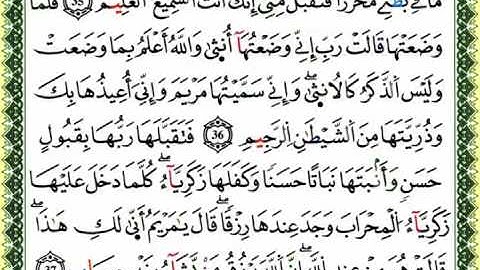 مَا فِي بَطْنِي مُحَرَّرًا فَتَقَبَّلْ مِنِّي إِنَّكَ أَنْتَ السَّمِيعُ الْعَلِيمُ ﴿35﴾ فَلَمَّا
وَضَعَتْهَا قَالَتْ رَبِّ إِنِّي وَضَعْتُهَآ أُنْثَىٰ وَاللَّهُ أَعْلَمُ بِمَا وَضَعَتْ
وَلَيْسَ الذَّكَرُ كَالْأُنْثَىٰ ۖ وَإِنِّي سَمَّيْتُهَا مَرْيَمَ وَإِنِّي أُعِيذُهَا بِكَ
وَذُرِّيَّتَهَا مِنَ الشَّيْطَانِ الرَّجِيمِ ﴿36﴾ فَتَقَبَّلَهَا رَبُّهَا بِقَبُولٍ
حَسَنٍ وَأَنْبَتَهَا نَبَاتًا حَسَنًا وَكَفَّلَهَا زَكَرِيَّآءُ ۖ كُلَّمَا دَخَلَ عَلَيْهَا
زَكَرِيَّآءُ الْمِحْرَابَ وَجَدَ عِنْدَهَا رِزْقًا ۖ قَالَ يَا مَرْيَمُ أَنَّىٰ لَكِ هَٰذَا ۖ
قَالَتْ هُوَ مِنْ عِنْدِ اللَّهِ ۖ إِنَّ اللَّهَ يَرْزُقُ مَنْ يَشَآءُ بِغَيْرِ حِسَابٍ ﴿37﴾